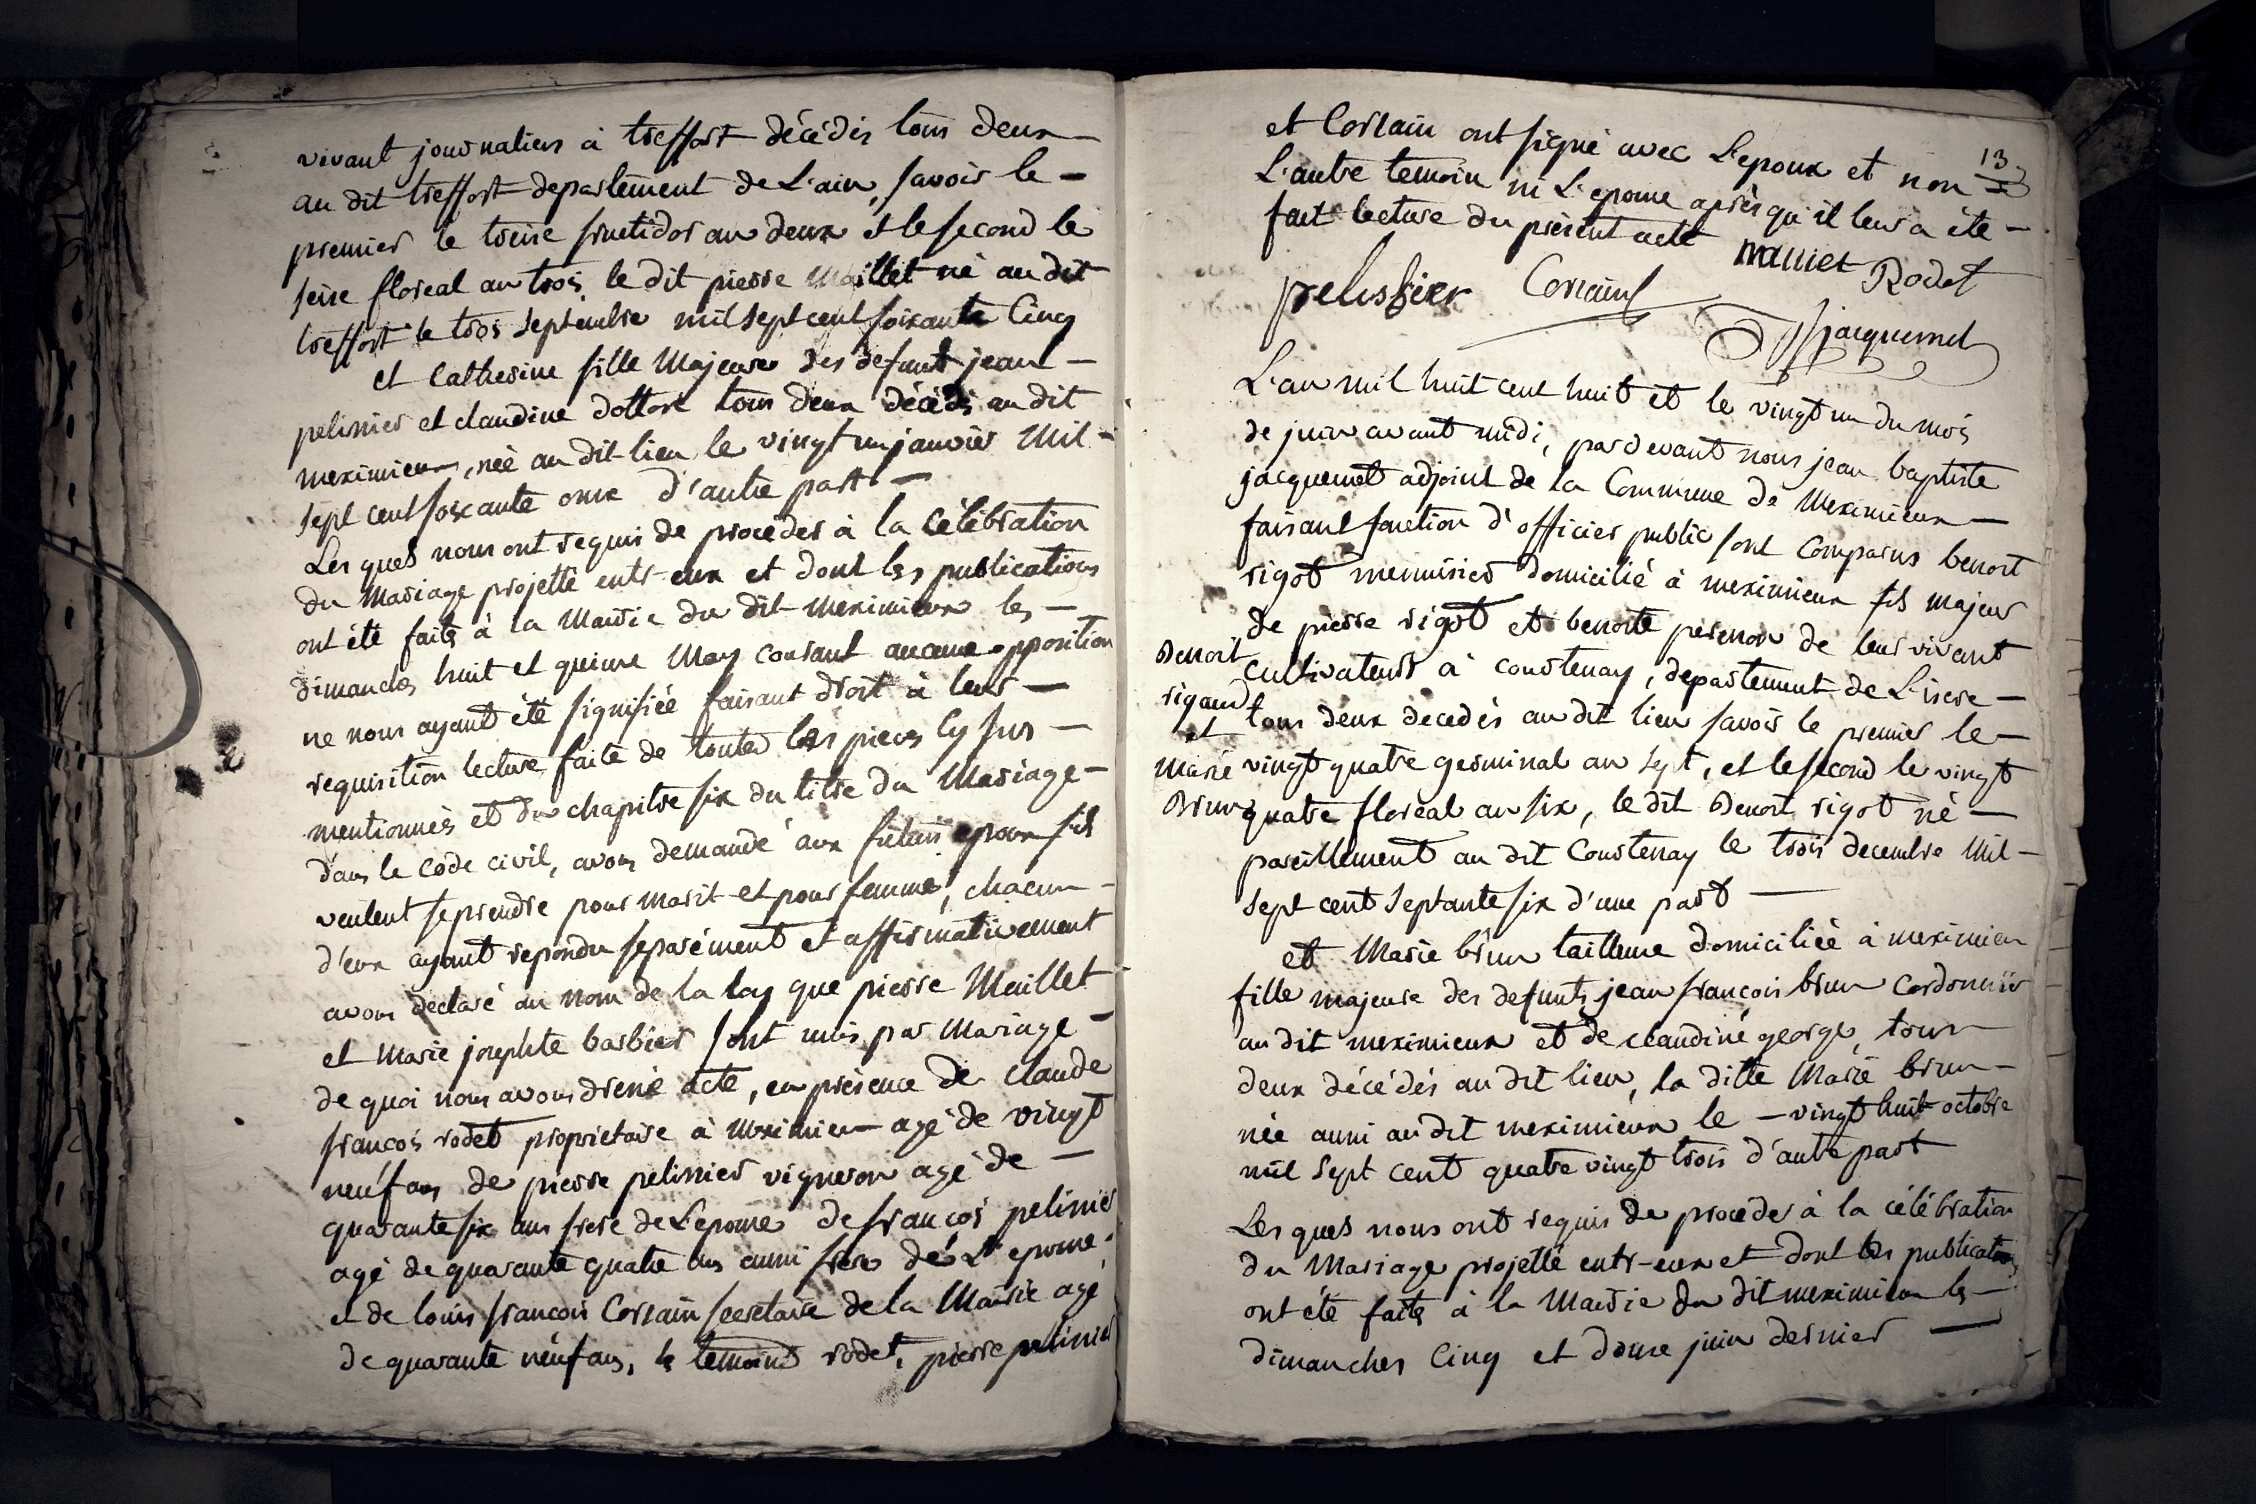 vivant journaliers à treffort décédés tous deux
au dit treffort departement de L'ain, savoir le
premier le treise fructidor an deux et le second le
seise floreal an trois, le dit pierre Maillet né au dit
treffort le trois septembre mil sept cent soixante Cinq
et Catherine fille Majeure des defunts jean
pelissier et claudine dottore tous deux décédés au dit
meximieux, née au dit lieu le vingt un janvier Mil
sept cent soixante onze d'autre part
Les quels nous ont requis de proceder à la célébration
du Mariage projetté entr-eux et dont les publications
ont été faites à la Mairie du dit meximieux les
dimanches huit et quinze May courant aucune opposition
ne nous ayant été signifiée faisant droit à leur
requisition lecture faite de toutes les pieces Cy sus
mentionnées et du chapitre six du titre du Mariage
dans le code civil, avons demandé aux futurs epoux s'ils
veulent se prendre pour marit et pour femme, chacun
d'eux ayant repondu separément et affirmativement
avons declaré au nom de la loy que pierre Maillet
et Marie josephte barbier sont unis par Mariage
de quoi nous avons dressé acte, en présence de claude
françois rodet proprietaire à Meximieux agé de vingt
neuf ans de pierre pelissier vigneron agé de
quarante six ans frere de L'epouse de françois pelissier
agé de quarante quatre ans aussi frere de L'epouse
et de louis françois Corsain secretaire de la Mairie agé
de quarante neuf ans, le temoins rodet, pierre pelissier
et Corsain ont signé avec L'epoux et non
13
L'autre temoin ni L'epouse après qu'il leur a été
fait lecture du présent acte maillet Rodet
pelissier Corsain
jacquemet
L'an mil huit cent huit et le vingt un du mois
de juin avant midi, pardevant nous jean baptiste
jacquemet adjoint de la Commune de Meximieux
faisant fonction d'officier public sont comparus benoit
rigot menuisier domicilié à meximieux fils majeur
de pierre rigot et benoite perenon de leur vivant
Benoit
rigaud
et
Marie
Brun
cultivateurs à courtenay, departement de L'isere
tous deux decedés au dit lieu savoir le premier le
vingt quatre germinal an sept, et le second le vingt
quatre floreal an six, le dit Benoit rigot né
pareillement au dit Courtenay le trois decembre Mil
sept cent septante six d'une part
et Marie brun tailleuse domiciliée à meximieu
fille majeure des defunts jean françois brun Cordonnier
au dit meximieux et de claudine george, tous
deux décédés au dit lieu, la ditte Marie brun
née aussi au dit meximieux le vingt huit octobre
mil sept cent quatre vingt trois d'autre part
Les quels nous ont requis de proceder à la célébration
du Mariage projetté entr-eux et dont les publications
ont été faites à la Mairie du dit meximieux les
dimanches Cinq et douze juin dernier